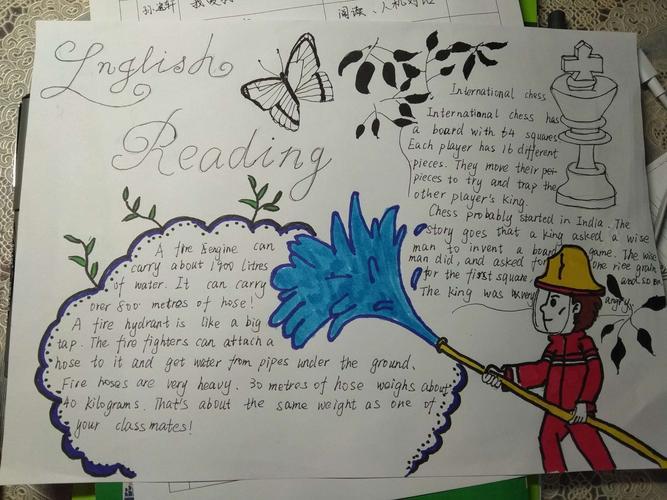 孙
阅读、人机对话
English
Reading
International chess
International chess has
a board with 64 squares
Each player has 16 different
pieces. They move their per
pieces to try and trap the
other player's king.
Chess probably started in India. The
story goes that a king asked a wise
man to invent a board game. The wise
man did, and asked for one rice grain
for the first square and so on
The king was very angry.
A fire Eengine can
carry about 1900 litres
of water. It can carry
over 800 metres of hose!
A fire hydrant is like a big
tap. The fire fighters can attach a
hose to it and get water from pipes under the ground.
Fire hoses are very heavy. 30 metres of hose weighs about
40 kilograms. That's about the same weight as one of
your classmates!